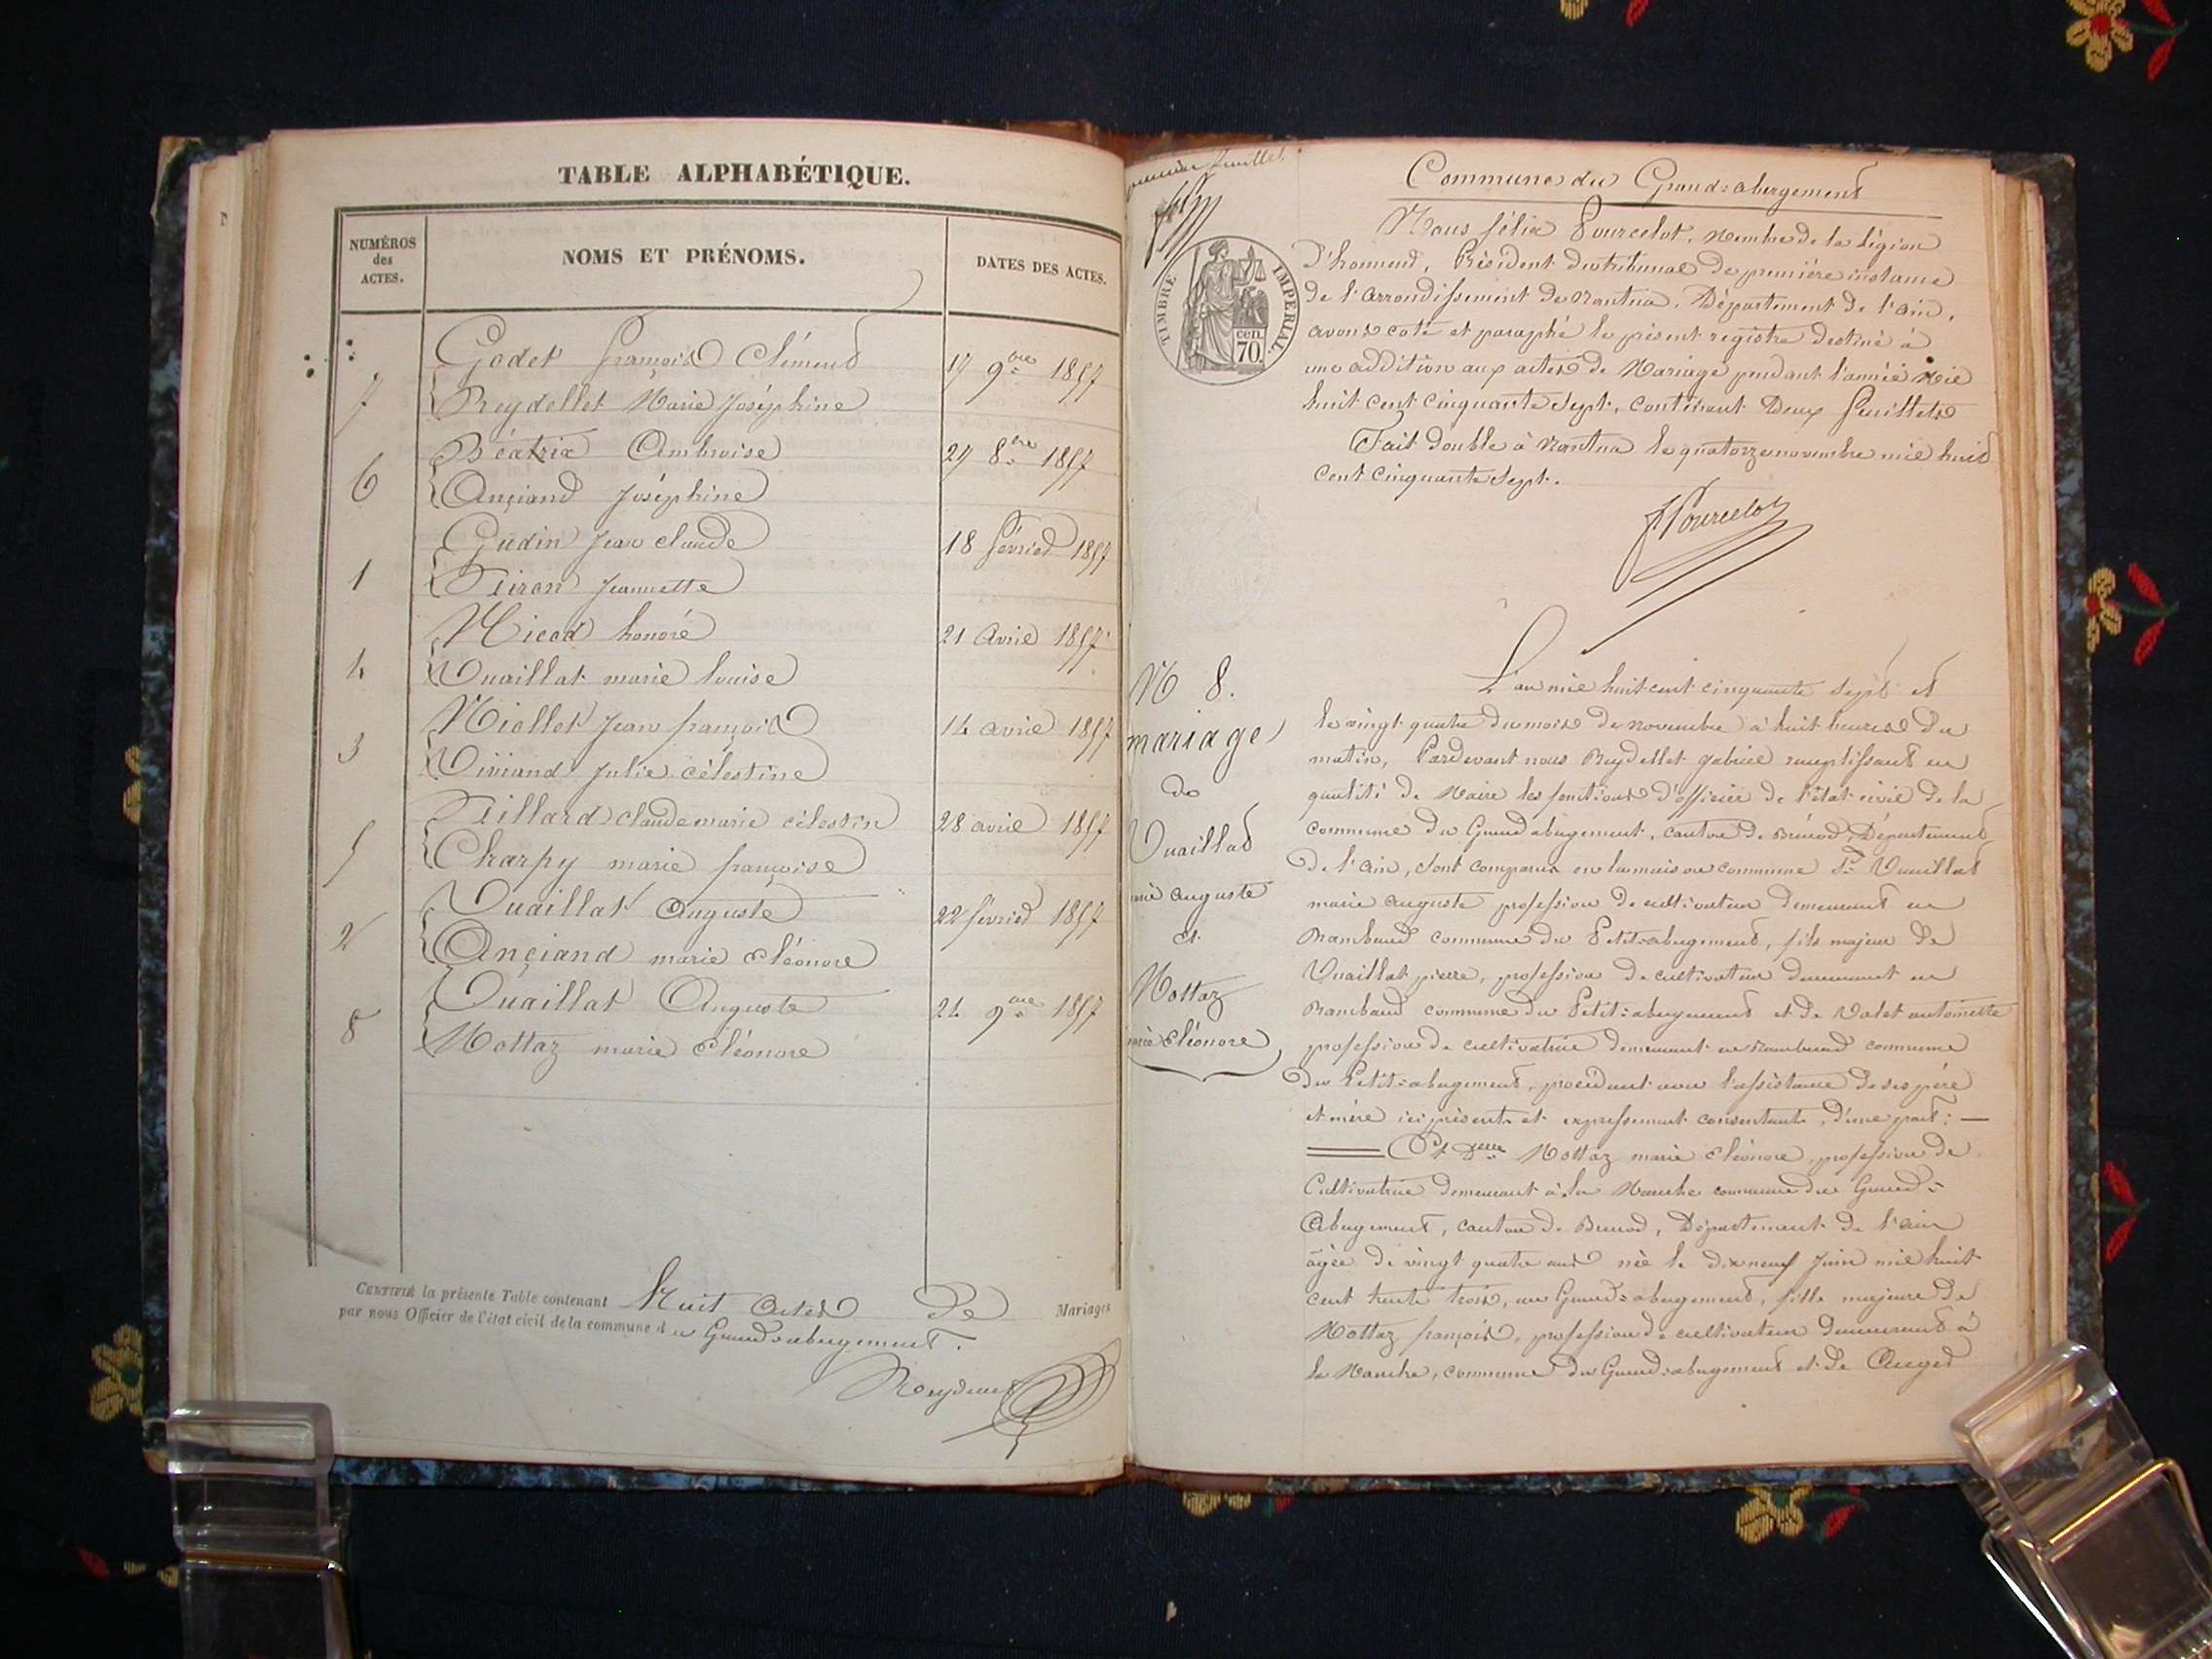 TABLE ALPHABÉTIQUE.
NUMÉROS des ACTES.
NOMS ET PRÉNOMS.
DATES DES ACTES.
7
Godet françois Clément
Reydellet Marie Joséphine
17 9bre 1857
6
Béatrix Ambroise
Ançiand Joséphine
27 8bre 1857
1
Gudin Jean claude
Tiron Jeannette
18 février 1857
4
Micod honoré
Vuaillat marie louise
21 Avril 1857
3
Niollet Jean françois
Viviand Julie célestine
14 avril 1857
5
Tillard claude marie célestin
Charpy marie françoise
28 avril 1857
2
Vuaillat Auguste
Ançiand marie Eléonore
22 février 1857
8
Vuaillat Auguste
Mottaz marie Eléonore
24 9bre 1857
CERTIFIÉ la présente Table contenant huit actes de Mariages
par nous Officier de l'état civil de la commune du Grand-abergement.
premier feuillet
TIMBRE IMPERIAL.
70 cen.
Commune du Grand-abergement
Nous félix Pourcelot, membre de la légion
d'honneur, Président du tribunal de première instance
de l'arrondissement de Nantua, Département de l'ain,
avons coté et paraphé le présent registre destiné à
une addition aux actes de Mariage pendant l'année mil
huit cent cinquante sept, contenant Deux feuillets
Fait double à Nantua le quatorze novembre mil huit
cent cinquante sept.
F Pourcelot
N 8.
mariage
de
Vuaillat
marie auguste
et
Mottaz
marie Eléonore
L'an mil huit cent cinquante sept et
le vingt quatre du mois de novembre à huit heures du
matin, Pardevant nous Reydellet gabriel remplissant en
qualité de Maire les fonctions d'officier de l'état civil de la
commune du Grand abergement, canton de Brénod, Département
de l'ain, sont comparus en la maison commune Sr Vuaillat
marie auguste profession de cultivateur demeurant en
Rambaud commune du Petit-abergement, fils majeur de
Vuaillat pierre, profession de cultivateur demeurant en
Rambaud commune du Petit-abergement et de Valet antoinette
profession de cultivatrice demeurant en Rambaud commune
du Petit-abergement, procédant avec l'assistance de ses père
et mère ici présents et expressement consentants, d'une part;
Et Delle Mottaz marie Eléonore, profession de
Cultivatrice demeurant à la Manche commune du Grand-
Abergement, canton de Brenod, Département de l'ain
âgée de vingt quatre ans née le dix neuf Juin mil huit
cent trente trois, au Grand-abergement, fille majeure de
Mottaz françois, profession de cultivateur demeurant à
la Manche, commune du Grand-abergement et de Auger